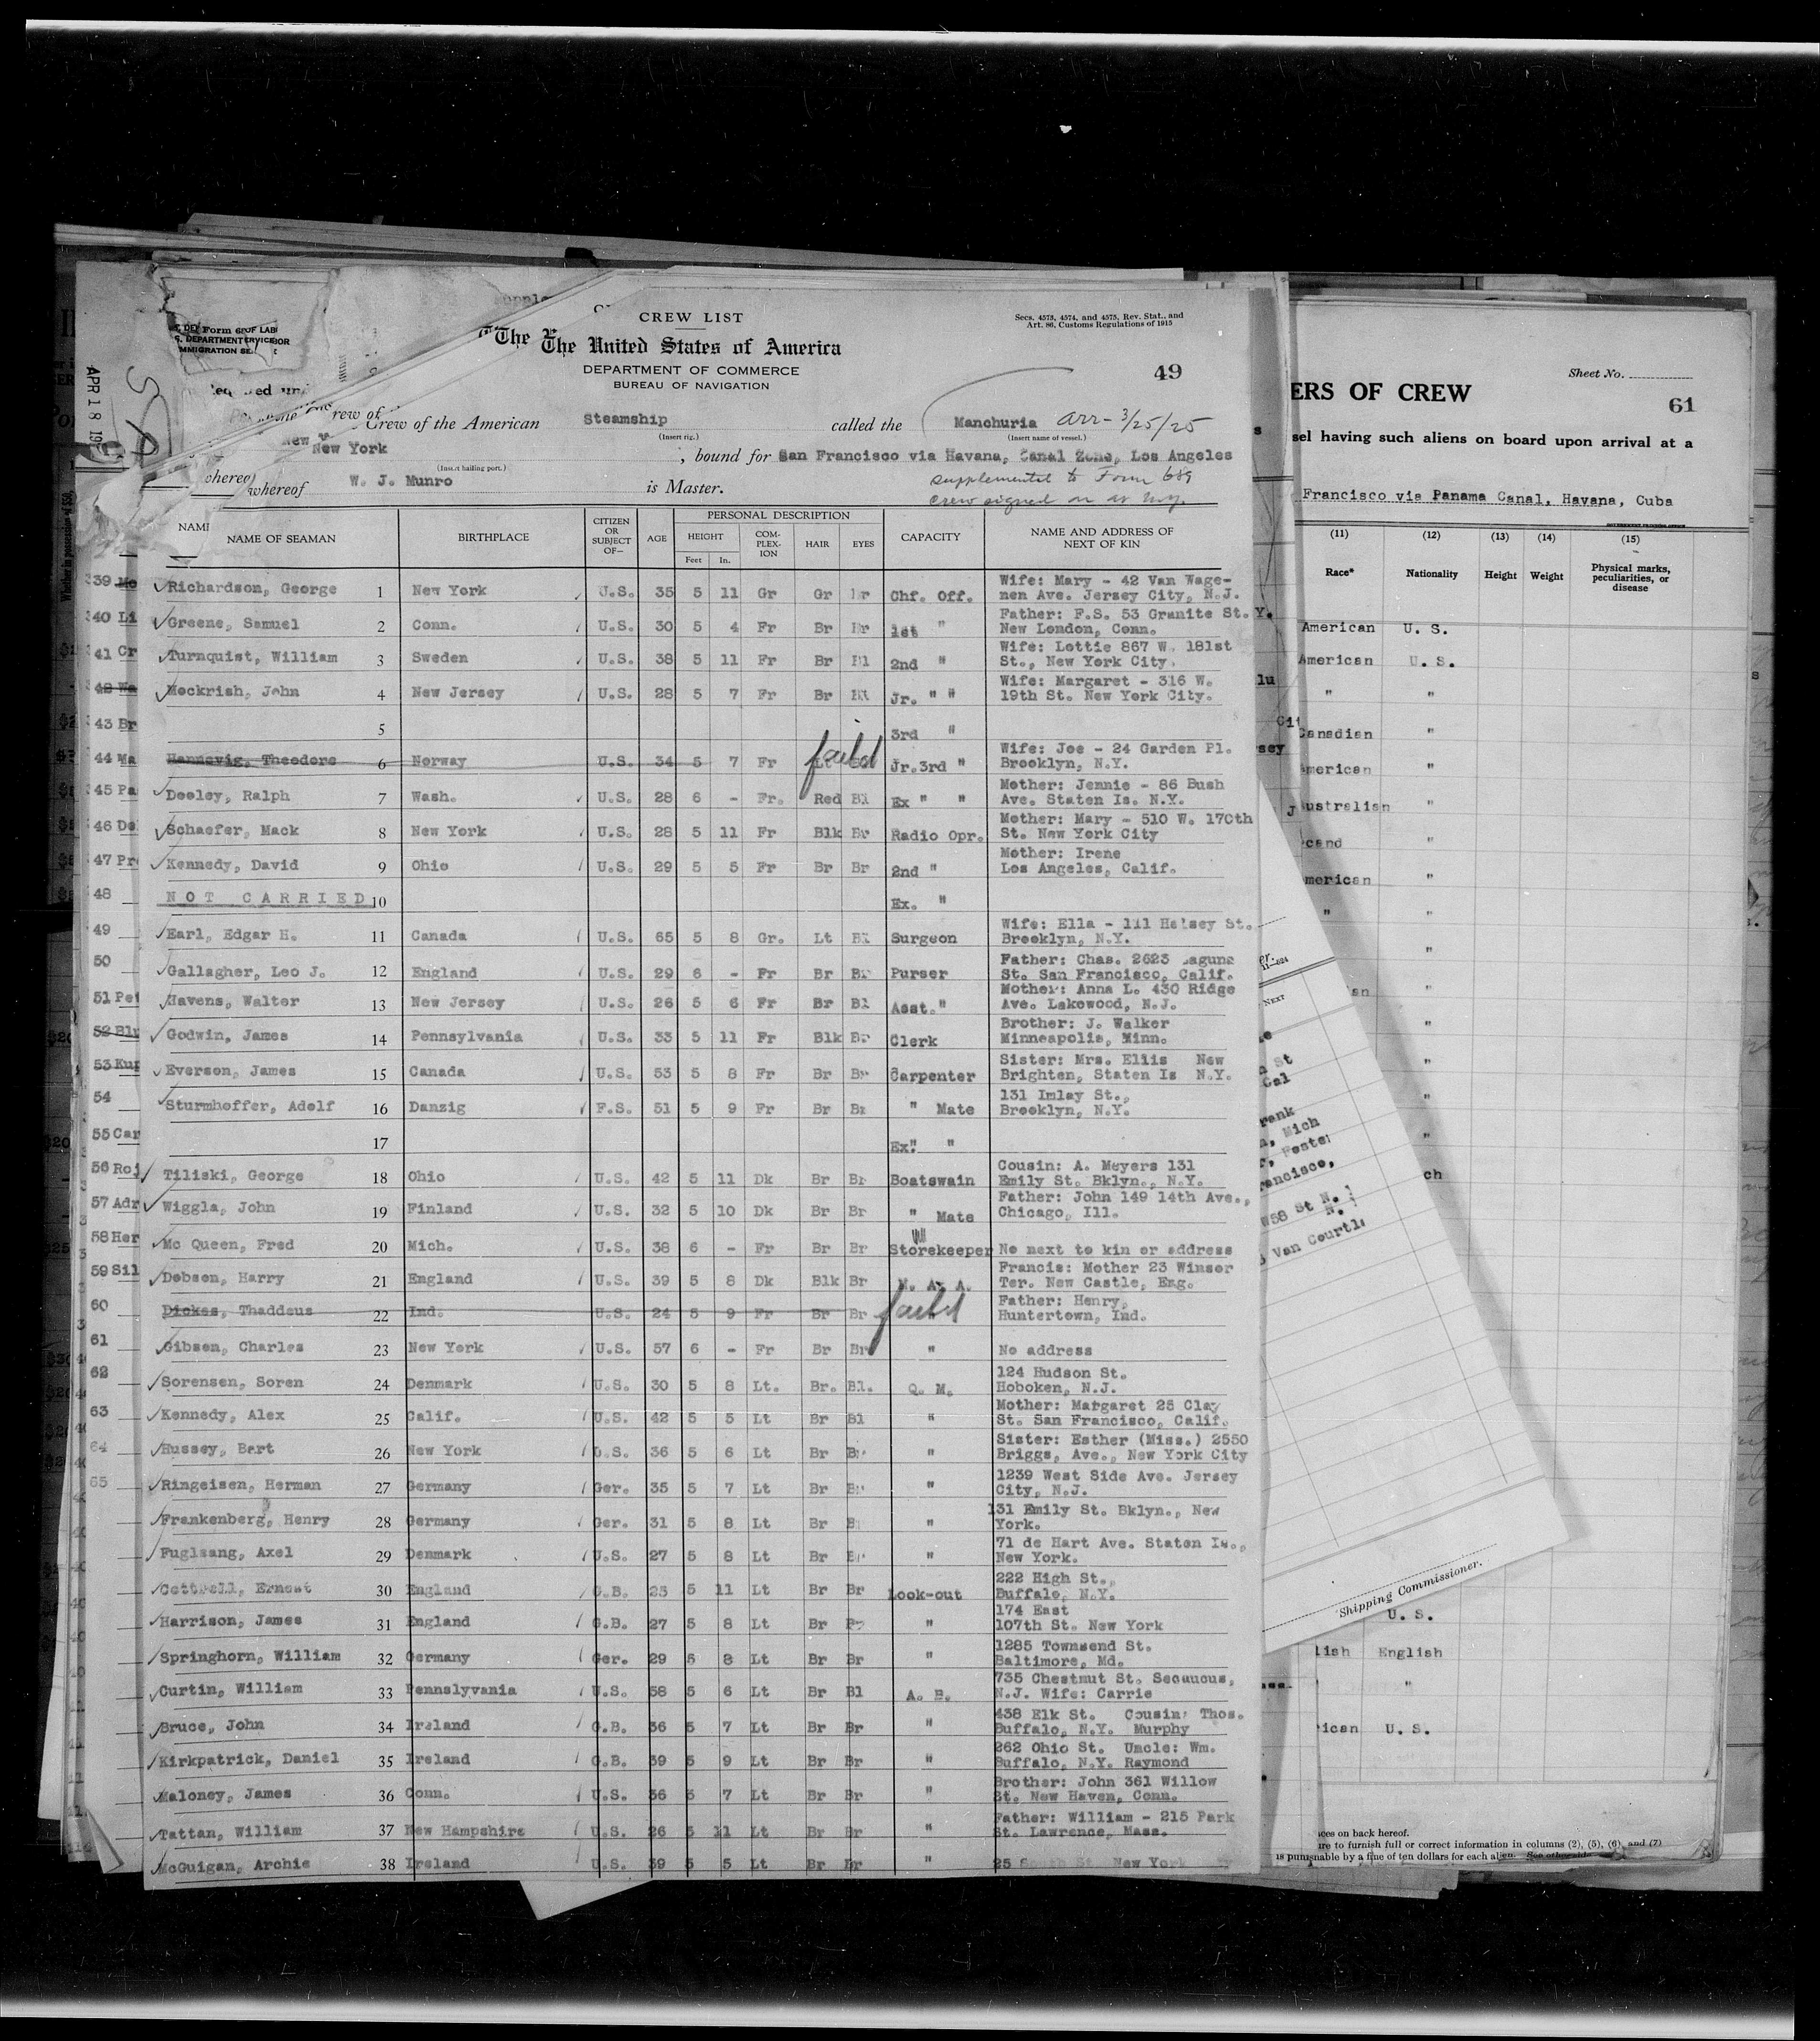 CREW LIST
Secs. 4573, 4574, and 4575, Rev. Stat., and
Art. 86, Customs Regulations of 1915
The United States of America
DEPARTMENT OF COMMERCE
BUREAU OF NAVIGATION
49
Crew of the American Steamship called the Manchuria arr- 3/25/25
(Insert rig.) (Insert name of vessel.)
New York, bound for San Francisco via Havana, Canal Zone, Los Angeles
(Insert hailing port.)
whereof W. J. Munro is Master. supplemental to Form 689
crew signed on at N.Y.
NAME OF SEAMAN BIRTHPLACE CITIZEN OR SUBJECT OF— AGE PERSONAL DESCRIPTION HEIGHT Feet In. COM-PLEX-ION HAIR EYES CAPACITY NAME AND ADDRESS OF NEXT OF KIN
Richardson, George 1 New York U.S. 35 5 11 Gr Gr Chf. Off. Wife: Mary - 42 Van Wage-
nen Ave. Jersey City, N.J.
Greene, Samuel 2 Conn. U.S. 30 5 4 Fr Br Br 1st " Father: F.S. 53 Granite St.
New London, Conn.
Turnquist, William 3 Sweden U.S. 38 5 11 Fr Br Bl 2nd " Wife: Lottie 867 W. 181st
St., New York City.
Mockrish, John 4 New Jersey U.S. 28 5 7 Fr Br Jr. " " Wife: Margaret - 316 W.
19th St. New York City.
5 3rd "
Hannevig, Theodore 6 Norway U.S. 34 5 7 Fr failed Jr.3rd " Wife: Joe - 24 Garden Pl.
Brooklyn, N.Y.
Dooley, Ralph 7 Wash. U.S. 28 6 - Fr. Red Bl Ex " " Mother: Jennie - 86 Bush
Ave. Staten Is. N.Y.
Schaefer, Mack 8 New York U.S. 28 5 11 Fr Blk Br Radio Opr. Mother: Mary - 510 W. 170th
St. New York City
Kennedy, David 9 Ohio U.S. 29 5 5 Fr Br Br 2nd " Mother: Irene
Los Angeles, Calif.
NOT CARRIED 10 Ex. "
Earl, Edgar H. 11 Canada U.S. 65 5 8 Gr. Lt Bl Surgeon Wife: Ella - 111 Halsey St.
Brooklyn, N.Y.
Gallagher, Leo J. 12 England U.S. 29 6 - Fr Br Br Purser Father: Chas. 2623 Laguna
St. San Francisco, Calif.
Havens, Walter 13 New Jersey U.S. 26 5 6 Fr Br Bl Asst." Mother: Anna L. 430 Ridge
Ave. Lakewood, N.J.
Godwin, James 14 Pennsylvania U.S. 33 5 11 Fr Blk Br Clerk Brother: J. Walker
Minneapolis, Minn.
Everson, James 15 Canada U.S. 53 5 8 Fr Br Br Carpenter Sister: Mrs. Ellis New
Brighten, Staten Is N.Y.
Sturmhoffer, Adolf 16 Danzig F.S. 51 5 9 Fr Br " Mate 131 Imlay St.,
Brooklyn, N.Y.
17 Ex" "
Tiliski, George 18 Ohio U.S. 42 5 11 Dk Br Br Boatswain Cousin: A. Meyers 131
Emily St. Bklyn., N.Y.
Wiggla, John 19 Finland U.S. 32 5 10 Dk Br Br " Mate Father: John 149 14th Ave.,
Chicago, Ill.
Mc Queen, Fred 20 Mich. U.S. 38 6 - Fr Br Br Storekeeper No next to kin or address
Dobson, Harry 21 England U.S. 39 5 8 Dk Blk Br M. A. A. Francis: Mother 23 Winsor
Ter. New Castle, Eng.
Dickes, Thaddeus 22 Ind. U.S. 24 5 9 Fr Br Br failed " Father: Henry,
Huntertown, Ind.
Gibson, Charles 23 New York U.S. 57 6 - Fr Br Br " No address
Sorensen, Soren 24 Denmark U.S. 30 5 8 Lt. Br. Bl. Q. M. 124 Hudson St.
Hoboken, N.J.
Kennedy, Alex 25 Calif. U.S. 42 5 5 Lt Br Bl " Mother: Margaret 28 Clay
St. San Francisco, Calif.
Hussey, Bert 26 New York U.S. 36 5 6 Lt Br Br " Sister: Esther (Miss.) 2550
Briggs, Ave., New York City
Ringeisen, Herman 27 Germany Ger. 35 5 7 Lt Br Br " 1239 West Side Ave. Jersey
City, N.J.
Frankenberg, Henry 28 Germany Ger. 31 5 8 Lt Br " 131 Emily St. Bklyn., New
York.
Fuglsang, Axel 29 Denmark U.S. 27 5 8 Lt Br Br " 71 de Hart Ave. Staten Is.,
New York.
Cottrell, Ernest 30 England G.B. 23 5 11 Lt Br Br Look-out 222 High St.,
Buffalo, N.Y.
Harrison, James 31 England G.B. 27 5 8 Lt Br Br " 174 East
107th St. New York
Springhorn, William 32 Germany Ger. 29 5 8 Lt Br Br " 1285 Townsend St.
Baltimore, Md.
Curtin, William 33 Pennslyvania U.S. 58 5 6 Lt Br Bl A. B. 735 Chestnut St. Secaucus,
N.J. Wife: Carrie
Bruce, John 34 Ireland G.B. 36 5 7 Lt Br Br " 438 Elk St. Cousin: Thos.
Buffalo, N.Y. Murphy
Kirkpatrick, Daniel 35 Ireland G.B. 39 5 9 Lt Br Br " 262 Ohio St. Uncle: Wm.
Buffalo, N.Y. Raymond
Maloney, James 36 Conn. U.S. 36 5 7 Lt Br Br " Brother: John 361 Willow
St. New Haven, Conn.
Tattan, William 37 New Hampshire U.S. 26 5 11 Lt Br Br " Father: William - 215 Park
St. Lawrence, Mass.
McGuigan, Archie 38 Ireland U.S. 39 5 5 Lt Br Br " 25 South St. New York
APR 18
39
40 Li
41 Cr
42 Wa
43 Br
44 Ma
45 Pa
46 De
47 Pr
48
49
50
51 Pe
52 Bl
53 Kun
54
55 Car
56 Roj
57 Adr
58 Her
59 Sil
60
61
62
63
64
65
Sheet No.
ERS OF CREW
61
sel having such aliens on board upon arrival at a
Francisco via Panama Canal, Havana, Cuba
(11) (12) (13) (14) (15)
Race* Nationality Height Weight Physical marks, peculiarities, or disease
American U. S.
American U. S.
" "
Canadian "
American "
Australian "
"
American "
" "
Shipping Commissioner.
U. S.
lish English
"
ican U. S.
ices on back hereof.
ure to furnish full or correct information in columns (2), (5), (6), and (7)
is punishable by a fine of ten dollars for each alien. See other side